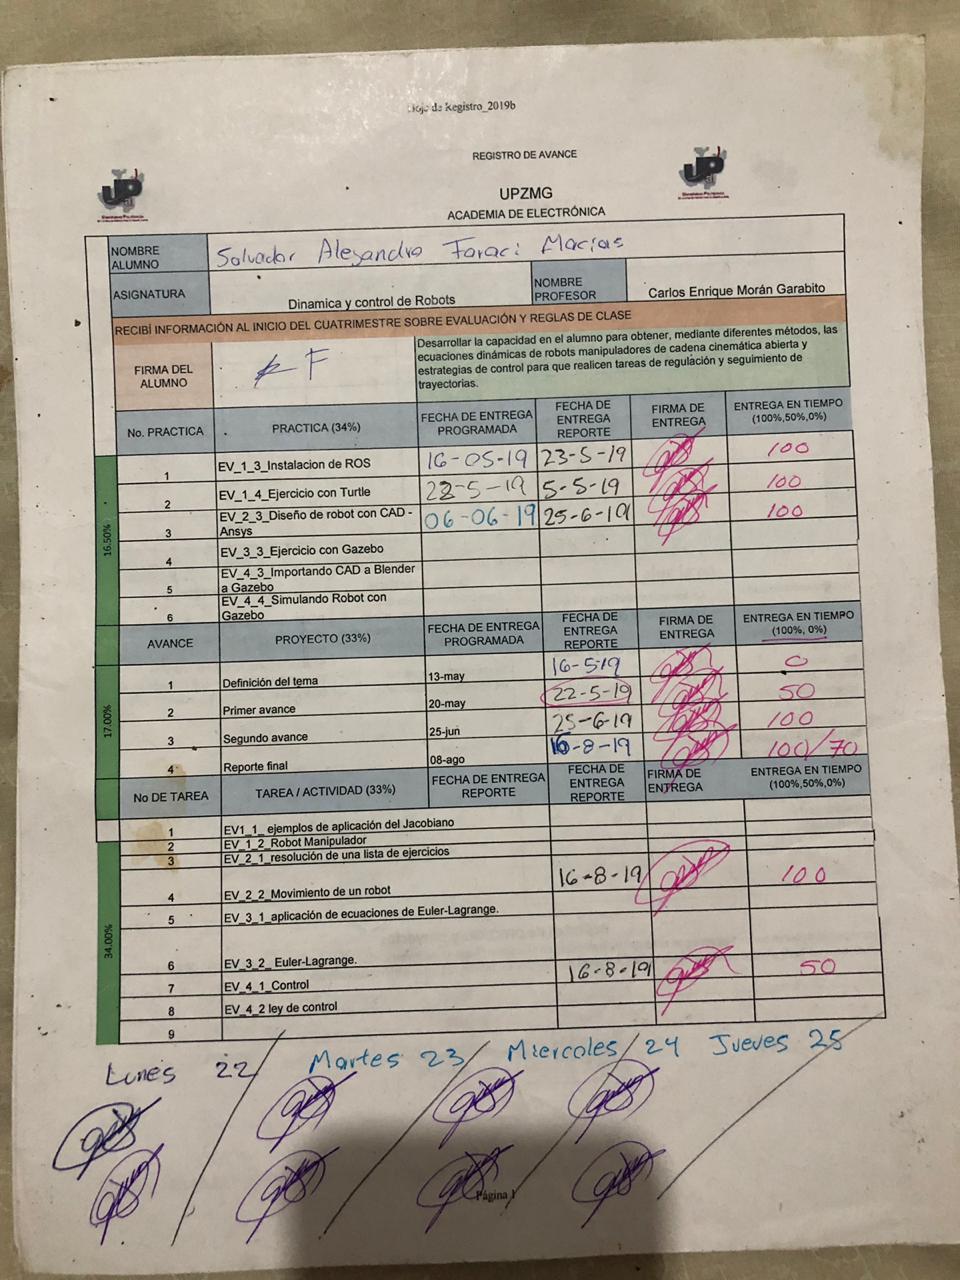 Hoja de Registro_2019b
REGISTRO DE AVANCE
UPZMG
ACADEMIA DE ELECTRÓNICA
NOMBRE ALUMNO Salvador Alejandro Faraci Macias
ASIGNATURA Dinamica y control de Robots NOMBRE PROFESOR Carlos Enrique Morán Garabito
RECIBÍ INFORMACIÓN AL INICIO DEL CUATRIMESTRE SOBRE EVALUACIÓN Y REGLAS DE CLASE
FIRMA DEL ALUMNO
Desarrollar la capacidad en el alumno para obtener, mediante diferentes métodos, las
ecuaciones dinámicas de robots manipuladores de cadena cinemática abierta y
estrategias de control para que realicen tareas de regulación y seguimiento de
trayectorias.
No. PRACTICA PRACTICA (34%) FECHA DE ENTREGA PROGRAMADA FECHA DE ENTREGA REPORTE FIRMA DE ENTREGA ENTREGA EN TIEMPO (100%,50%,0%)
16.50%
1 EV_1_3_Instalacion de ROS 16-05-19 23-5-19 100
2 EV_1_4_Ejercicio con Turtle 22-5-19 5-5-19 100
3 EV_2_3_Diseño de robot con CAD - Ansys 06-06-19 25-6-19 100
4 EV_3_3_Ejercicio con Gazebo
5 EV_4_3_Importando CAD a Blender a Gazebo
6 EV_4_4_Simulando Robot con Gazebo
AVANCE PROYECTO (33%) FECHA DE ENTREGA PROGRAMADA FECHA DE ENTREGA REPORTE FIRMA DE ENTREGA ENTREGA EN TIEMPO (100%, 0%)
17.00%
1 Definición del tema 13-may 16-5-19 0
2 Primer avance 20-may 22-5-19 50
3 Segundo avance 25-jun 25-6-19 100
4 Reporte final 08-ago 16-8-19 100/70
No DE TAREA TAREA / ACTIVIDAD (33%) FECHA DE ENTREGA REPORTE FECHA DE ENTREGA REPORTE FIRMA DE ENTREGA ENTREGA EN TIEMPO (100%,50%,0%)
34.00%
1 EV1_1_ ejemplos de aplicación del Jacobiano
2 EV_1_2_Robot Manipulador
3 EV_2_1_resolución de una lista de ejercicios
4 EV_2_2_Movimiento de un robot 16-8-19 100
5 EV_3_1_aplicación de ecuaciones de Euler-Lagrange.
6 EV_3_2_ Euler-Lagrange.
7 EV_4_1_Control 16-8-19 50
8 EV_4_2 ley de control
9
Lunes 22 / Martes 23 / Miercoles / 24 Jueves 25
Página 1